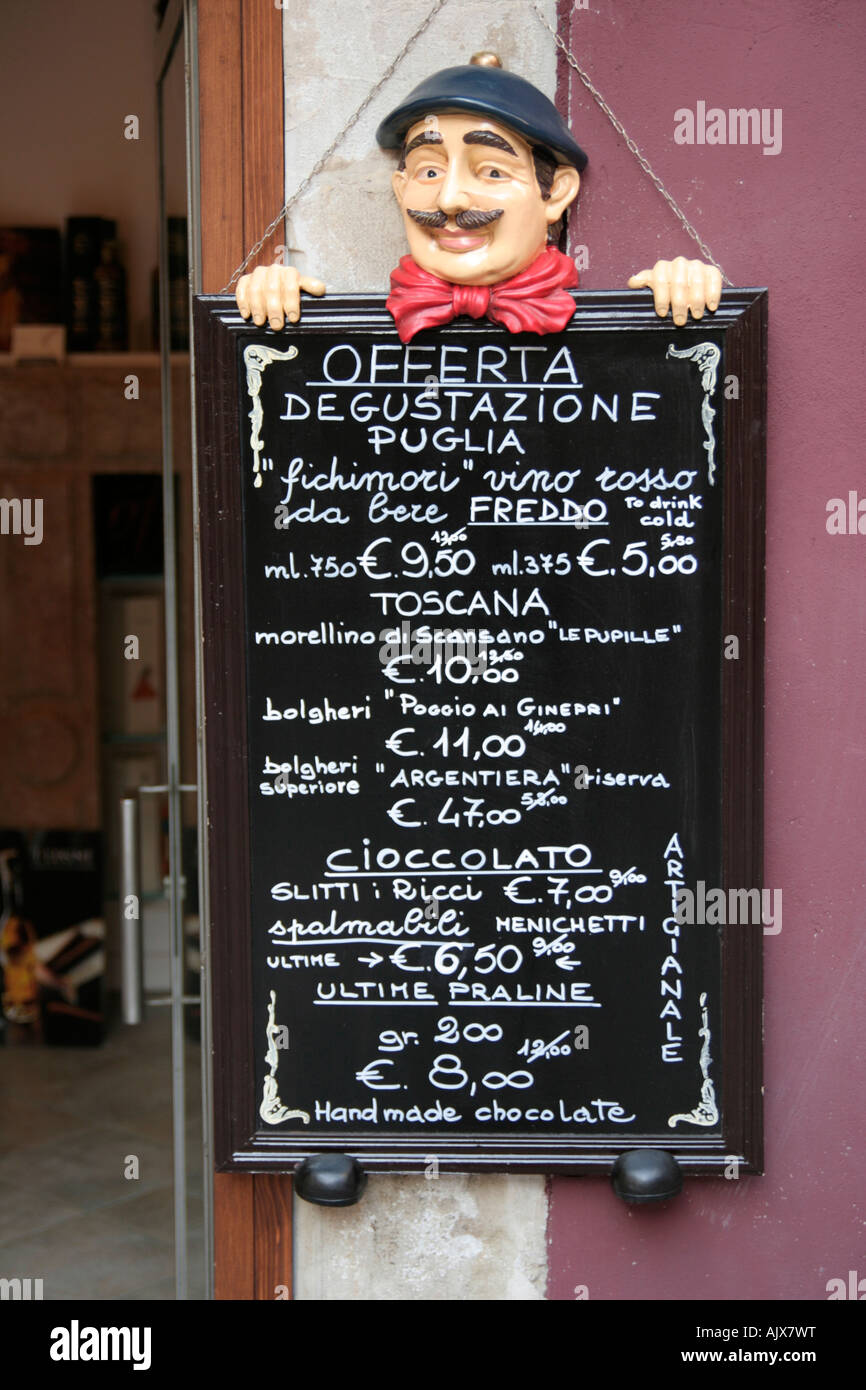 OFFERTA
DEGUSTAZIONE
PUGLIA
"fichimori" vino rosso
da bere FREDDO To drink cold
ml.750 €.9,50 12,00 ml.375 €.5,00
TOSCANA
morellino di Scansano "LE PUPILLE"
€.10,00
bolgheri "Poggio ai Ginepri"
€.11,00 14,00
bolgheri superiore "ARGENTIERA" riserva
€.47,00 58,00
CIOCCOLATO
SLITTI i Ricci €.7,00 9,00
spalmabili MENICHETTI
ULTIME → €.6,50 9,00 ←
ULTIME PRALINE
gr. 200
€. 8,00 12,00
Handmade chocolate
ARTIGIANALE
alamy
Image ID: AJX7WT
www.alamy.com